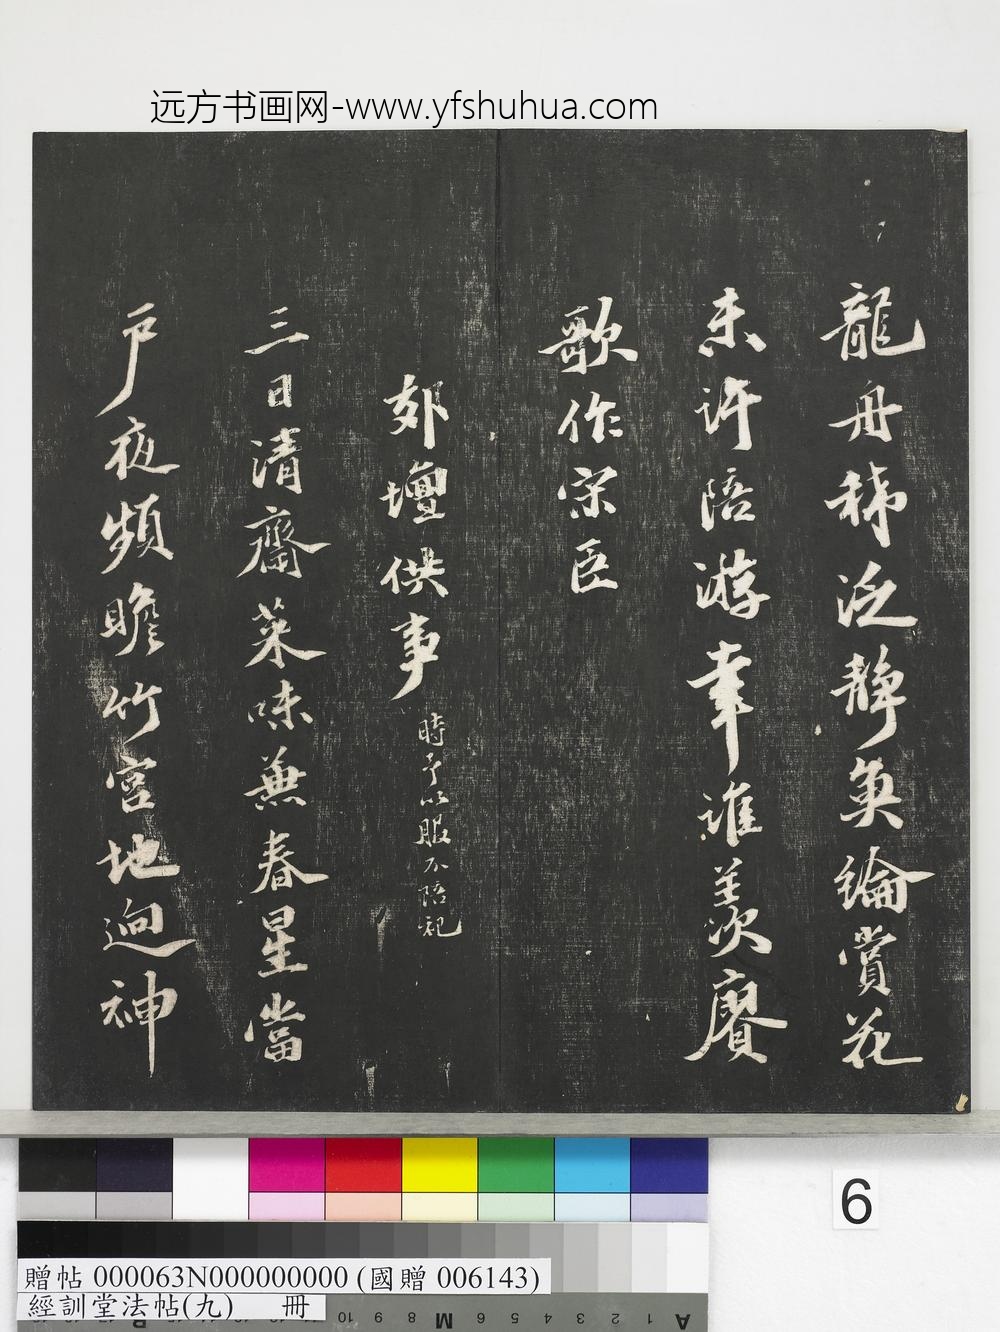 远方书画网-www.yfshuhua.com
龍舟稀泛靜奐綸賞花
未許陪游幸誰羨賡
歌作宋臣
郊壇供事
時予以服不陪祀
三日清齋菜味兼春星當
戶夜頻瞻竹宮地迥神
6
贈帖 000063N000000000 (國贈 006143)
經訓堂法帖(九) 冊
A 1 2 3 4 5 6 M 8 9 10